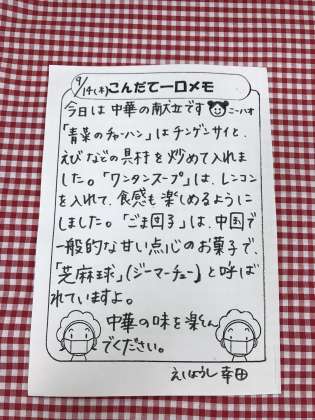 9/14(木)こんだて一口メモ
今日は中華の献立です
ニーハオ
「青菜のチャーハン」はチンゲンサイと、
えびなどの具材を炒めて入れま
した。「ワンタンスープ」は、レンコン
を入れて、食感も楽しめるように
しました。「ごま団子」は、中国で
一般的な甘い点心のお菓子で、
「芝麻球」(ジーマーチュー)と呼ば
れていますよ。
中華の味を楽しん
でください。
えいようし 幸田